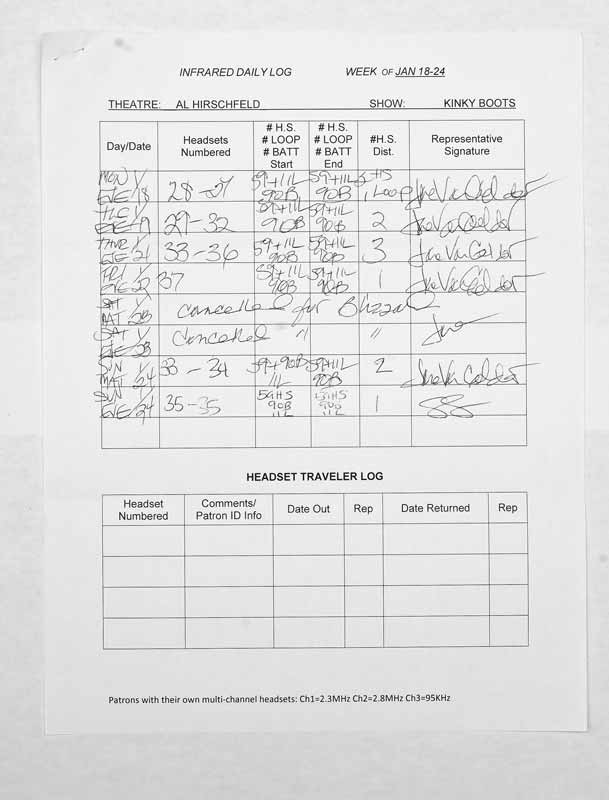 INFRARED DAILY LOG WEEK OF JAN 18-24
THEATRE: AL HIRSCHFELD SHOW: KINKY BOOTS
Day/Date Headsets Numbered # H.S. # LOOP # BATT Start # H.S. # LOOP # BATT End #H.S. Dist. Representative Signature
MON EVE 18 28-27 59+11L 90B 59+11L 90B 1 Loop
EVE 19 29-32 59+11L 90B 59+11L 90B 2
THUR EVE 21 33-36 59+11L 90B 59+11L 90B 3
FRI EVE 22 37 59+11L 90B 59+11L 90B 1
SAT MAT 23 Cancelled for Blizzard
SAT EVE 23 Cancelled " "
SUN MAT 24 33-34 59+90B 11L 59+11L 90B 2
SUN EVE 24 35-35 59HS 90B 11L 59HS 90B 11L 1
HEADSET TRAVELER LOG
Headset Numbered Comments/ Patron ID Info Date Out Rep Date Returned Rep
Patrons with their own multi-channel headsets: Ch1=2.3MHz Ch2=2.8MHz Ch3=95KHz